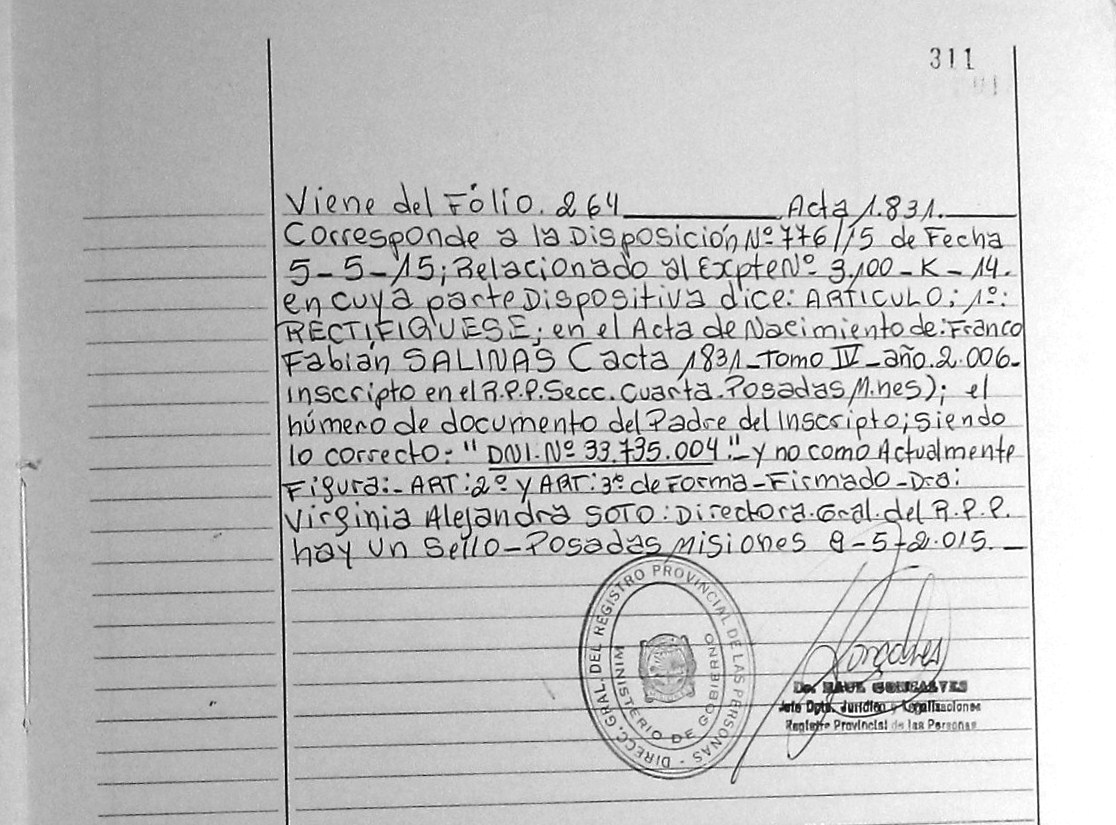 311
Viene del Fólio. 264 Acta 1.831.
Corresponde a la Disposición Nº 776/15 de Fecha
5-5-15; Relacionado al Expte Nº 3.100-K-14.
en cuya parte Dispositiva dice: ARTICULO; 1º:
RECTIFIQUESE; en el Acta de Nacimiento de: Franco
Fabián SALINAS (acta 1831-Tomo IV-año.2.006-
inscripto en el R.P.P. Secc. Cuarta. Posadas M.nes); el
número de documento del Padre del Inscripto; siendo
lo correcto: "DNI. Nº 33.735.004."- y no como Actualmente
Figura:- ART:2º y ART:3º de Forma-Firmado-Dra:
Virginia Alejandra SOTO: Directora.Gral.del R.P.P.
hay un Sello-Posadas Misiones 8-5-2.015.-
DIRECC. GRAL. DEL REGISTRO PROVINCIAL DE LAS PERSONAS -
MINISTERIO DE GOBIERNO
Dr. RAUL GONCALVES
Jefe Dpto. Jurídico y Legalizaciones
Registro Provincial de las Personas